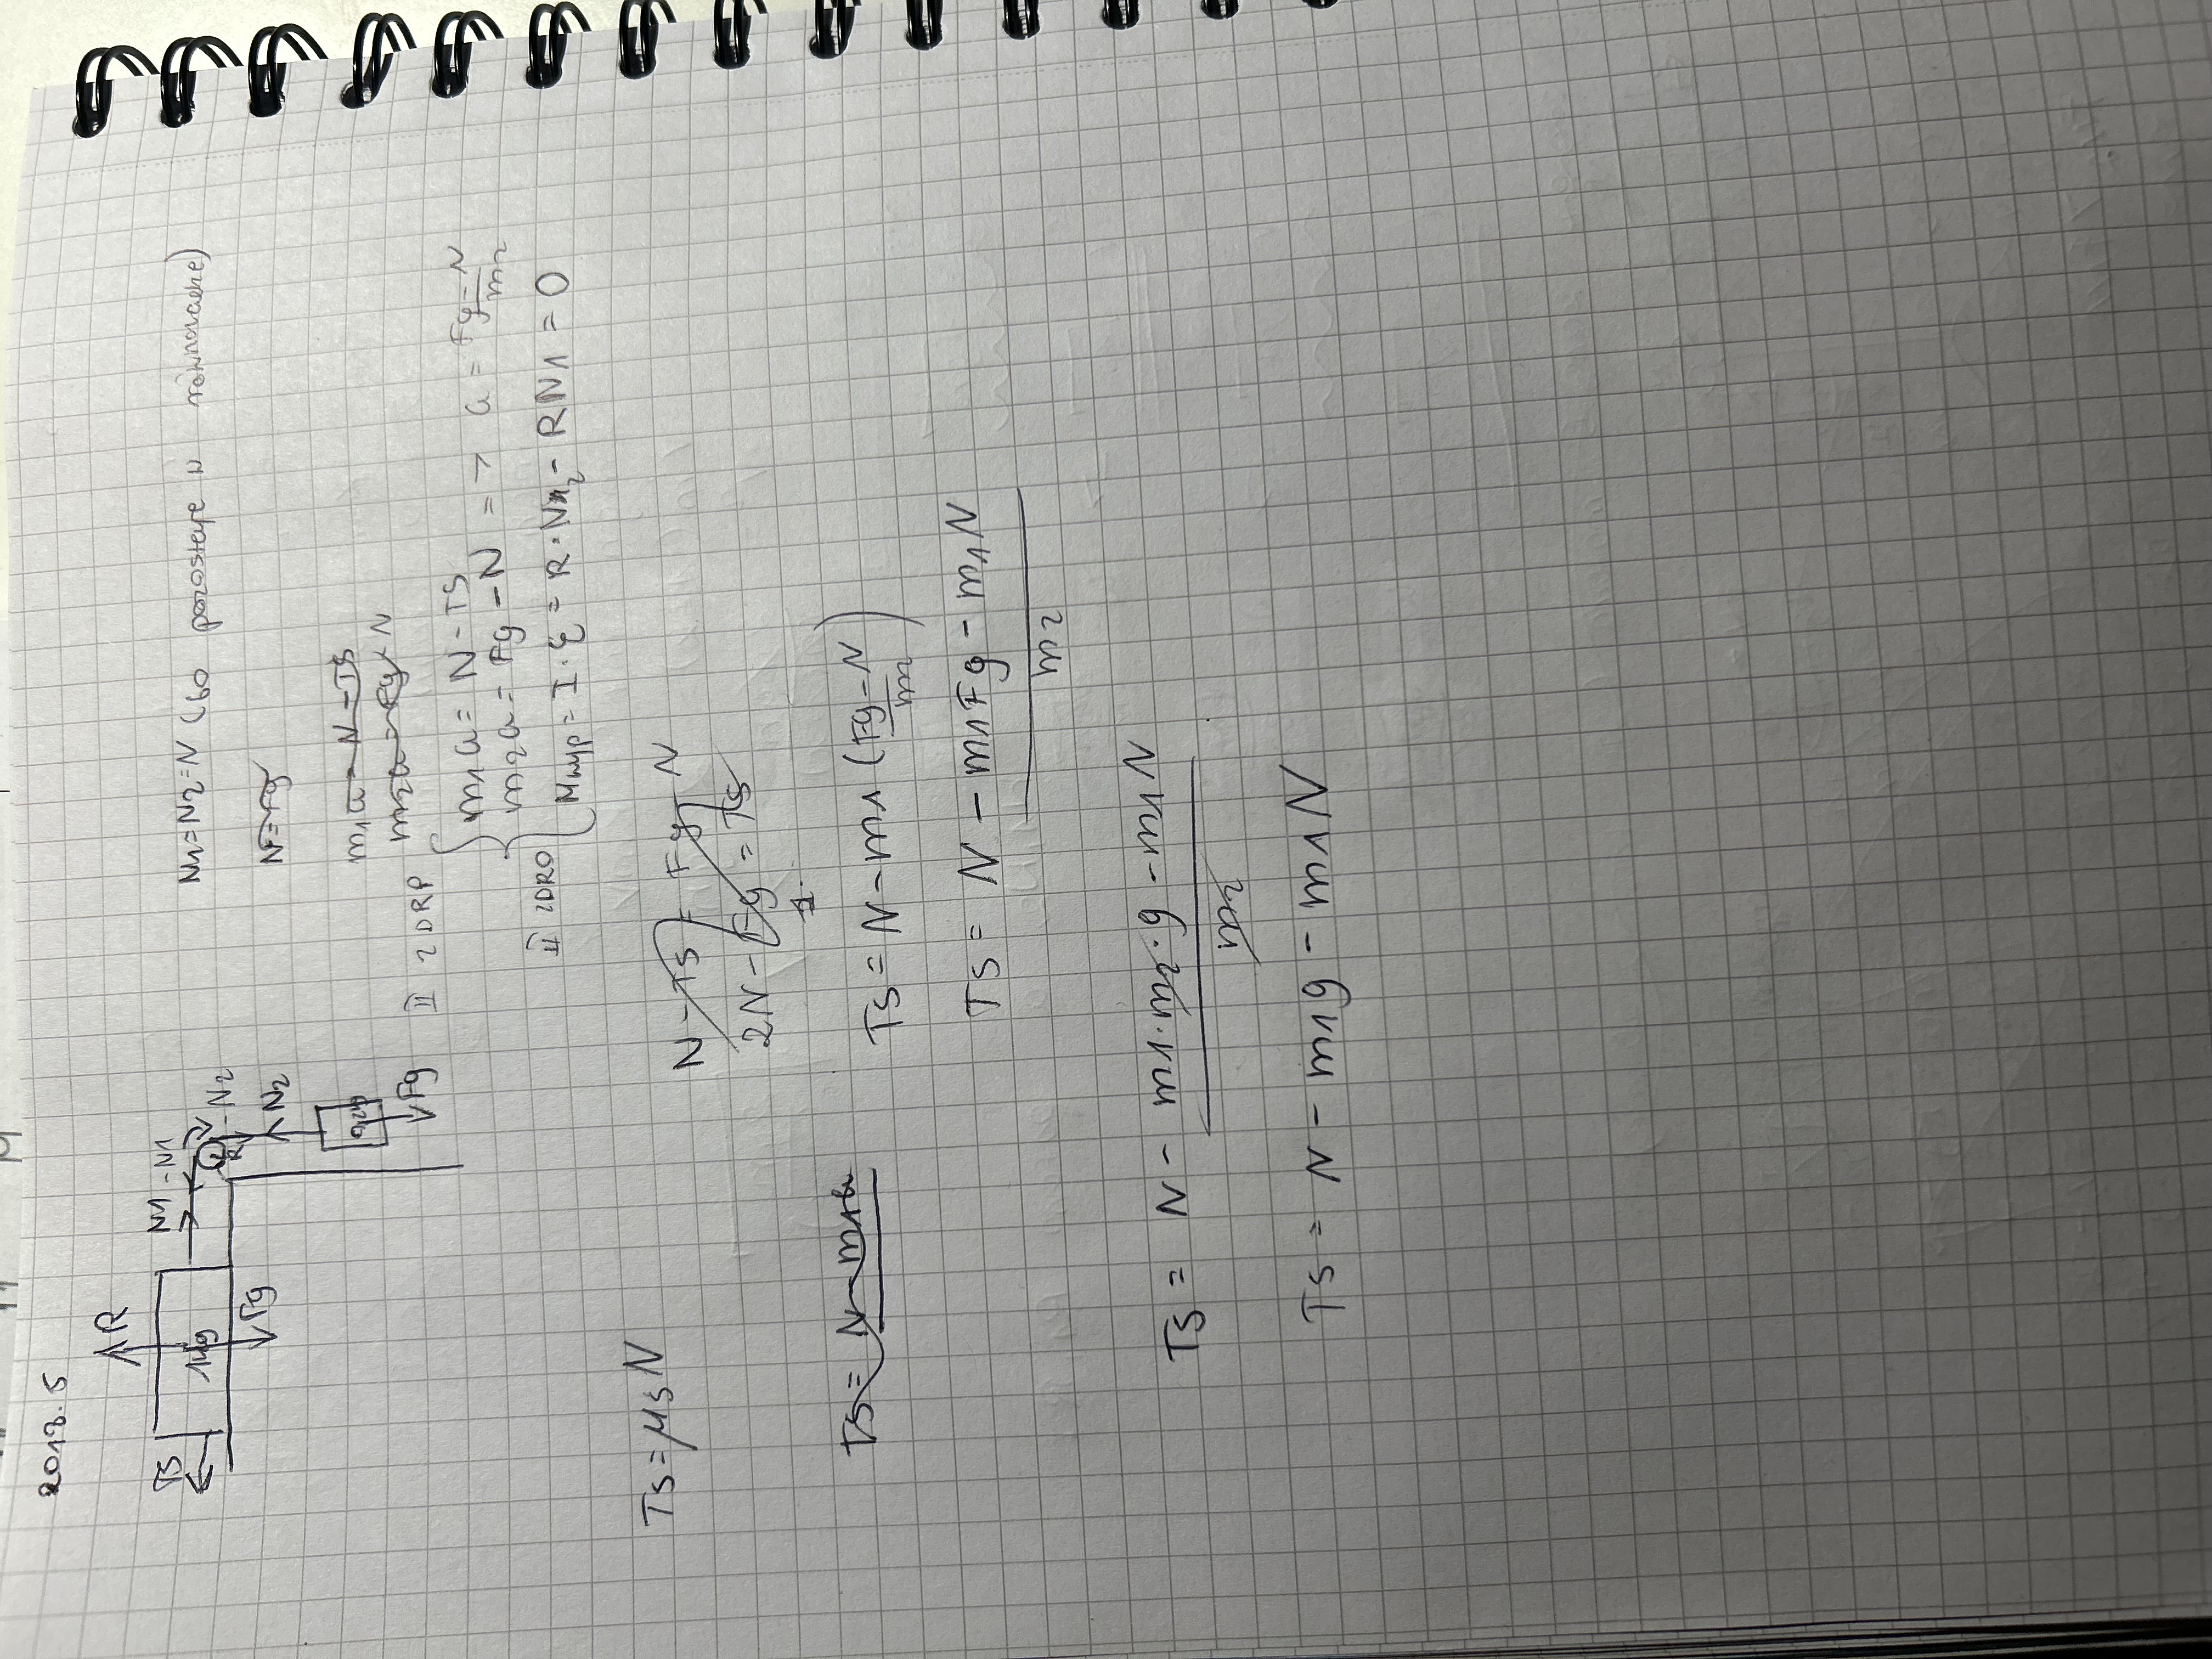 2018.5
R
TS
1kg
Fg
N1
-N1
-N2
R
N2
0,2kg
Fg
N1=N2=N (bo pozostaje w równowadze)
N=Fg
m1a=N-TS
m2a=Fg-N
II ZDRP
m1a=N-TS
m2a=Fg-N => a = Fg-N / m2
II ZDRO
Mwyp=I·ε=R·N2-RN1=0
TS=μsN
N-TS=Fg-N
2N-Fg=TS
TS=N-m1a
TS=N-m1(Fg-N / m2)
TS= N - m1Fg-m1N / m2
TS= N - m1·m2·g-m1N / m2
TS= N - m1g - m1N